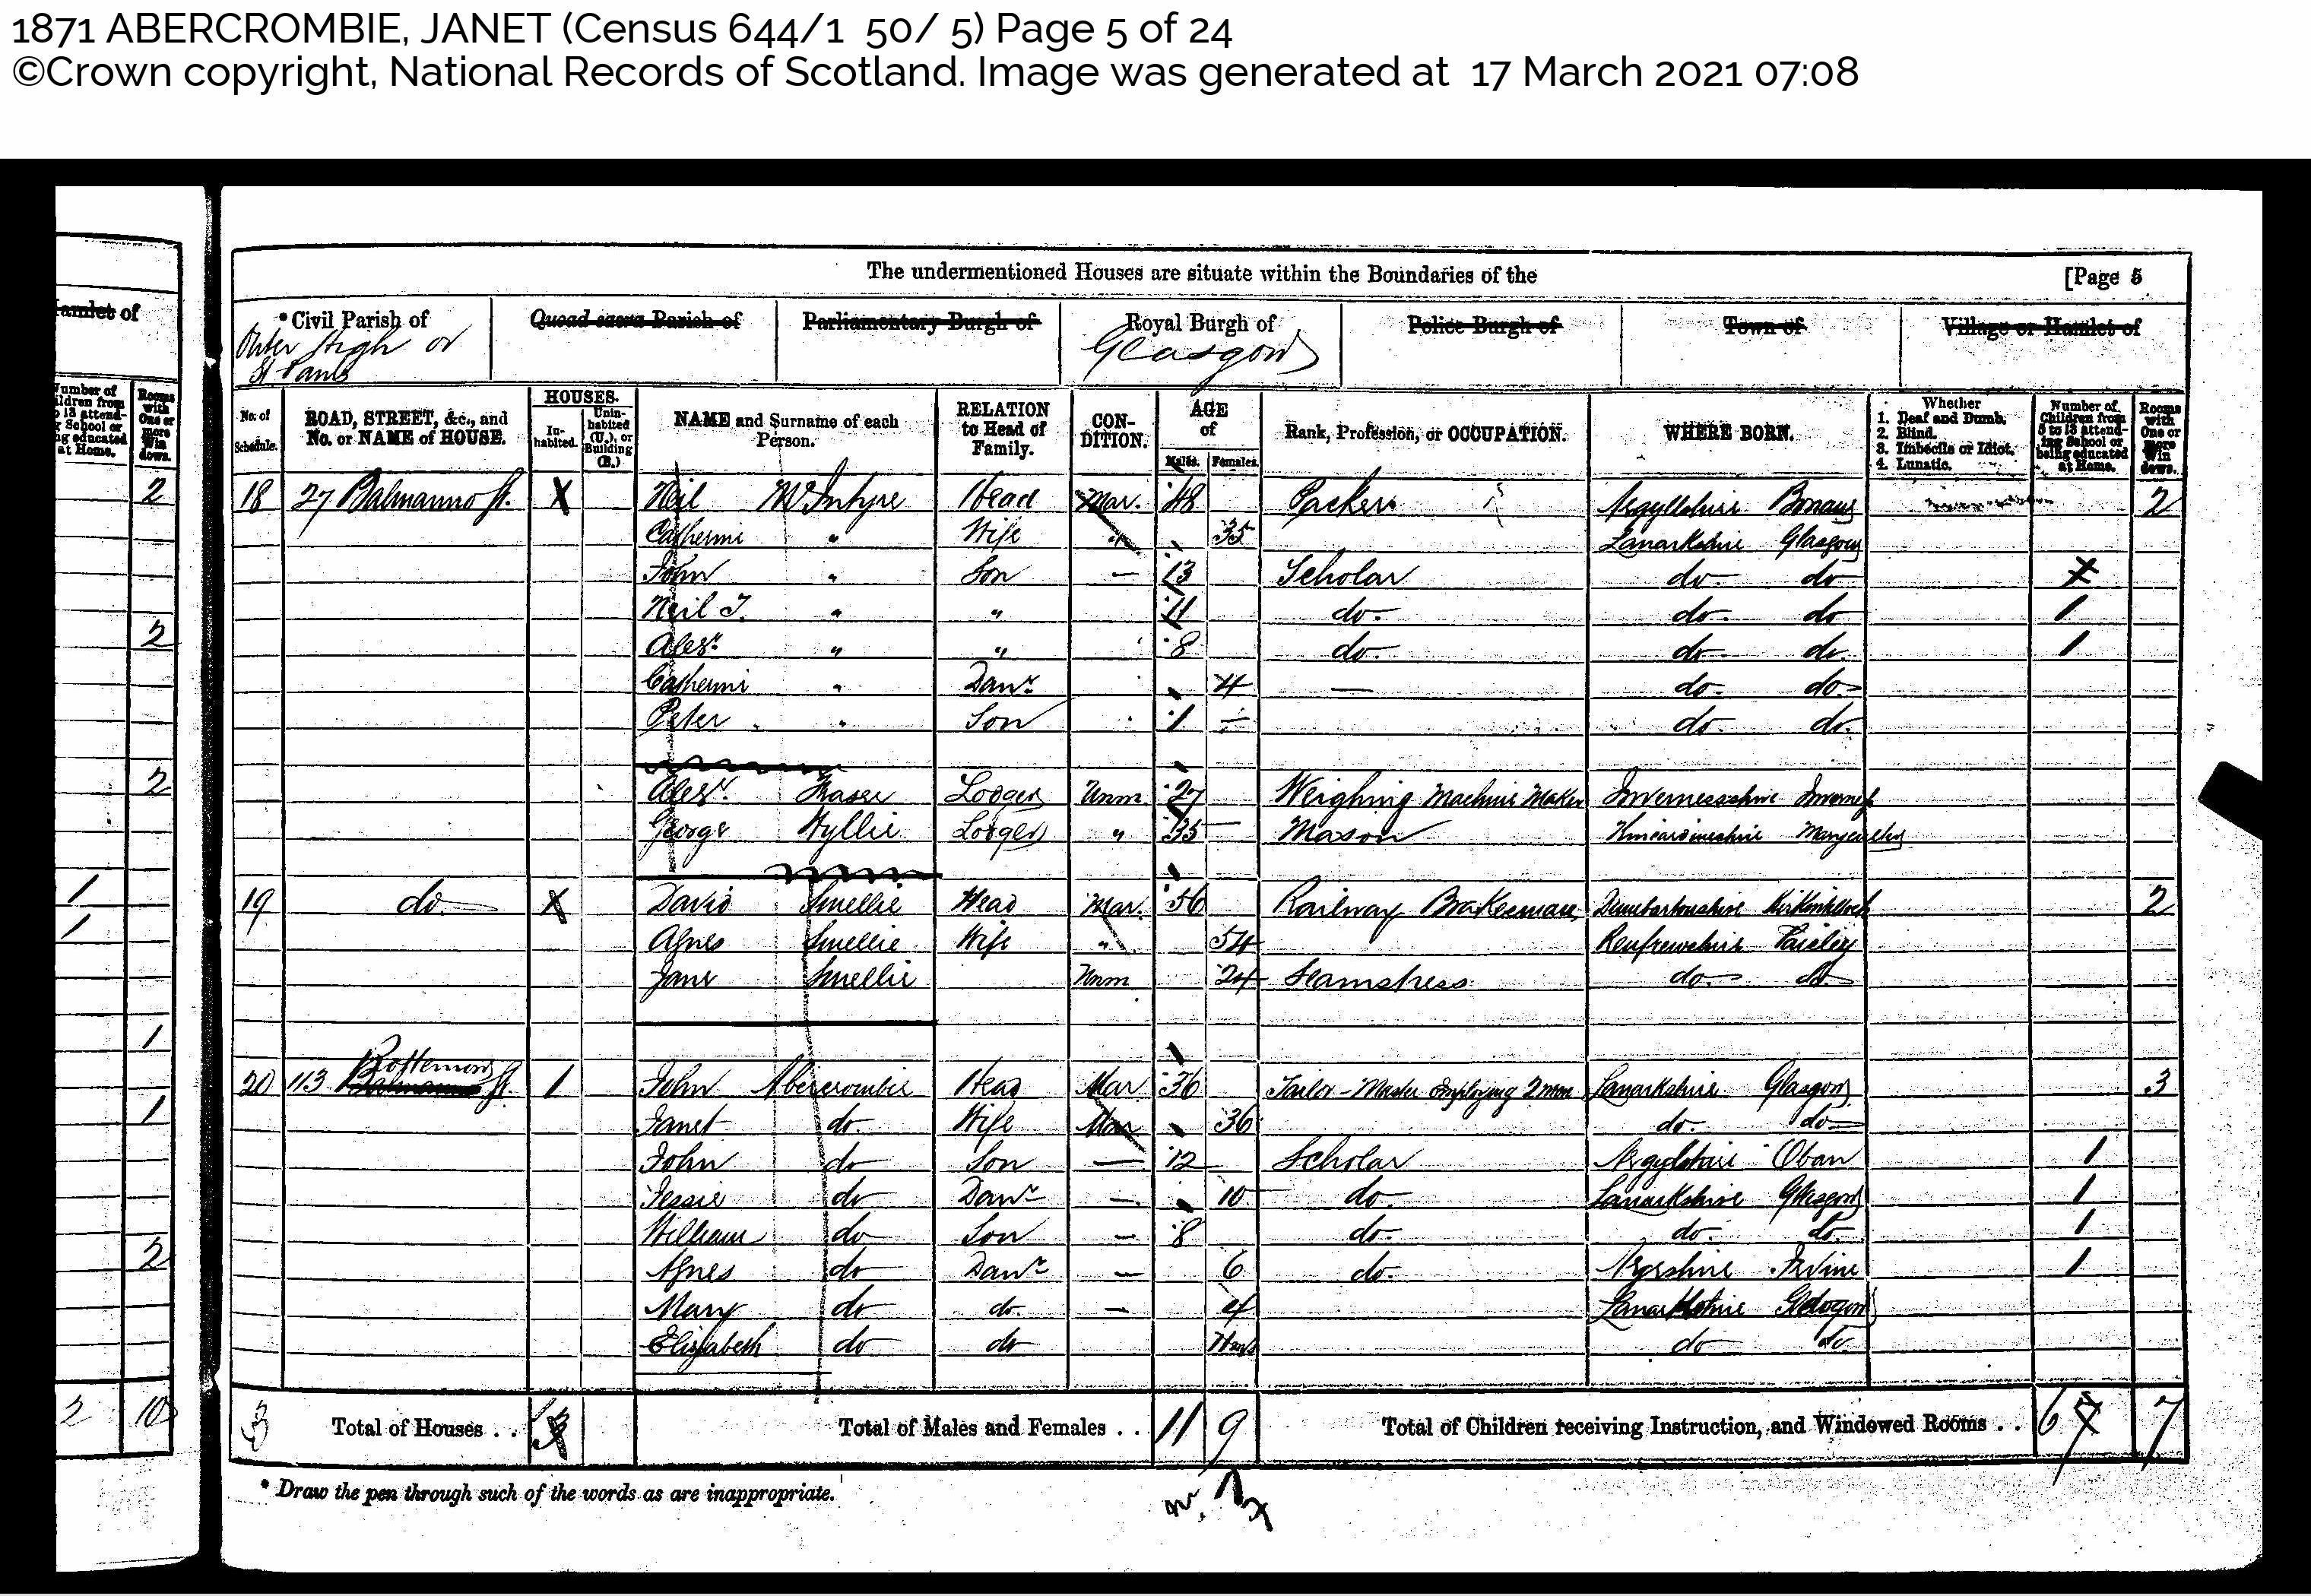 1871 ABERCROMBIE, JANET (Census 644/1 50/ 5) Page 5 of 24
©Crown copyright, National Records of Scotland. Image was generated at 17 March 2021 07:08
The undermentioned Houses are situate within the Boundaries of the [Page 5
Hamlet of
*Civil Parish of Quoad sacra Parish of Parliamentary Burgh of Royal Burgh of Police Burgh of Town of Village or Hamlet of
Outer High or Glasgow
St Pauls
No. of Schedule. ROAD, STREET, &c., and No. or NAME of HOUSE. HOUSES. Inhabited. Uninhabited (U.), or Building (B.) NAME and Surname of each Person. RELATION to Head of Family. CONDITION. AGE of Males. Females. Rank, Profession, or OCCUPATION. WHERE BORN. Whether 1. Deaf and Dumb. 2. Blind. 3. Imbecile or Idiot. 4. Lunatic. Number of Children from 5 to 13 attending School or being educated at Home. Rooms with One or more Windows.
2 18 27 Balmanno St. X Neil McIntyre Head Mar. 48 Packer Argyllshire Bonaw 2
Catherine " Wife " 35 Lanarkshire Glasgow
John " Son — 13 Scholar do do
Neil J. " " 11 do. do do 1
2 Alexr. " " 8 do. do do. 1
Catherine " Daur. 4 — do. do.
Peter " Son 1 — do do.
2 Alexr. Fraser Lodger Unm 27 Weighing Machine Maker Invernessshire Inverness
George Wyllie Lodger " 35 Mason Kincardineshire Marykirk
1 19 do. X David Smellie Head Mar. 56 Railway Brakesman Dumbartonshire Kirkintilloch 2
1 Agnes Smellie Wife " 54 Renfrewshire Paisley
Jane Smellie Unm 24 Seamstress do. do.
1
20 113 Balmanno Rottenrow St. 1 John Abercrombie Head Mar 36 Tailor - Master Employing 2 men Lanarkshire Glasgow 3
1 Janet do. Wife Mar 36 do do
John do Son — 12 Scholar Argylshire Oban 1
Jessie do Daur — 10 do. Lanarkshire Glasgow 1
William do Son — 8 do. do. do. 1
2 Agnes do Daur — 6 do. Ayrshire Irvine 1
Mary do do. — 4 Lanarkshire Glasgow
Elizabeth do do do do.
2 10 3 Total of Houses . . 3 Total of Males and Females . . 11 9 Total of Children receiving Instruction, and Windowed Rooms . . 6 7 7
* Draw the pen through such of the words as are inappropriate.